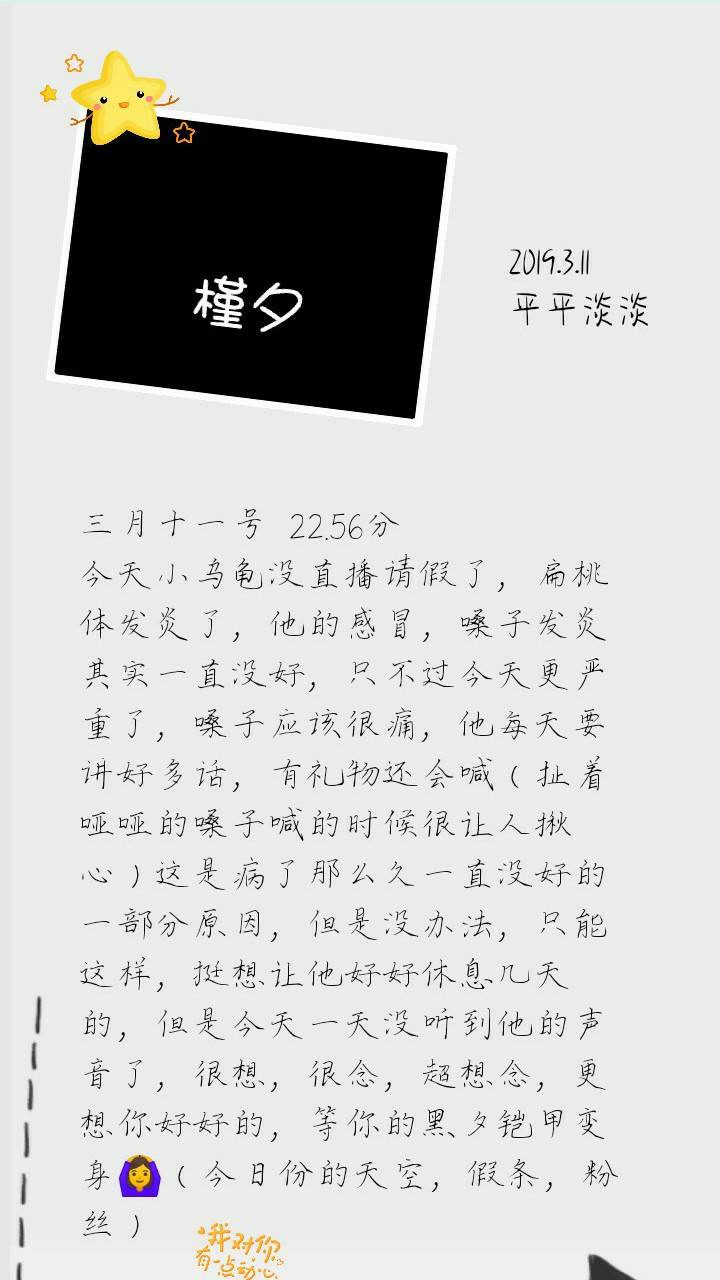 槿夕
2019.3.11
平平淡淡
三月十一号 22.56分
今天小乌龟没直播请假了，扁桃
体发炎了，他的感冒，嗓子发炎
其实一直没好，只不过今天更严
重了，嗓子应该很痛，他每天要
讲好多话，有礼物还会喊（扯着
哑哑的嗓子喊的时候很让人揪
心）这是病了那么久一直没好的
一部分原因，但是没办法，只能
这样，挺想让他好好休息几天
的，但是今天一天没听到他的声
音了，很想，很念，超想念，更
想你好好的，等你的黑夕铠甲变
身🙆‍♀️（今日份的天空，假条，粉
丝）
我对你
有一点动心